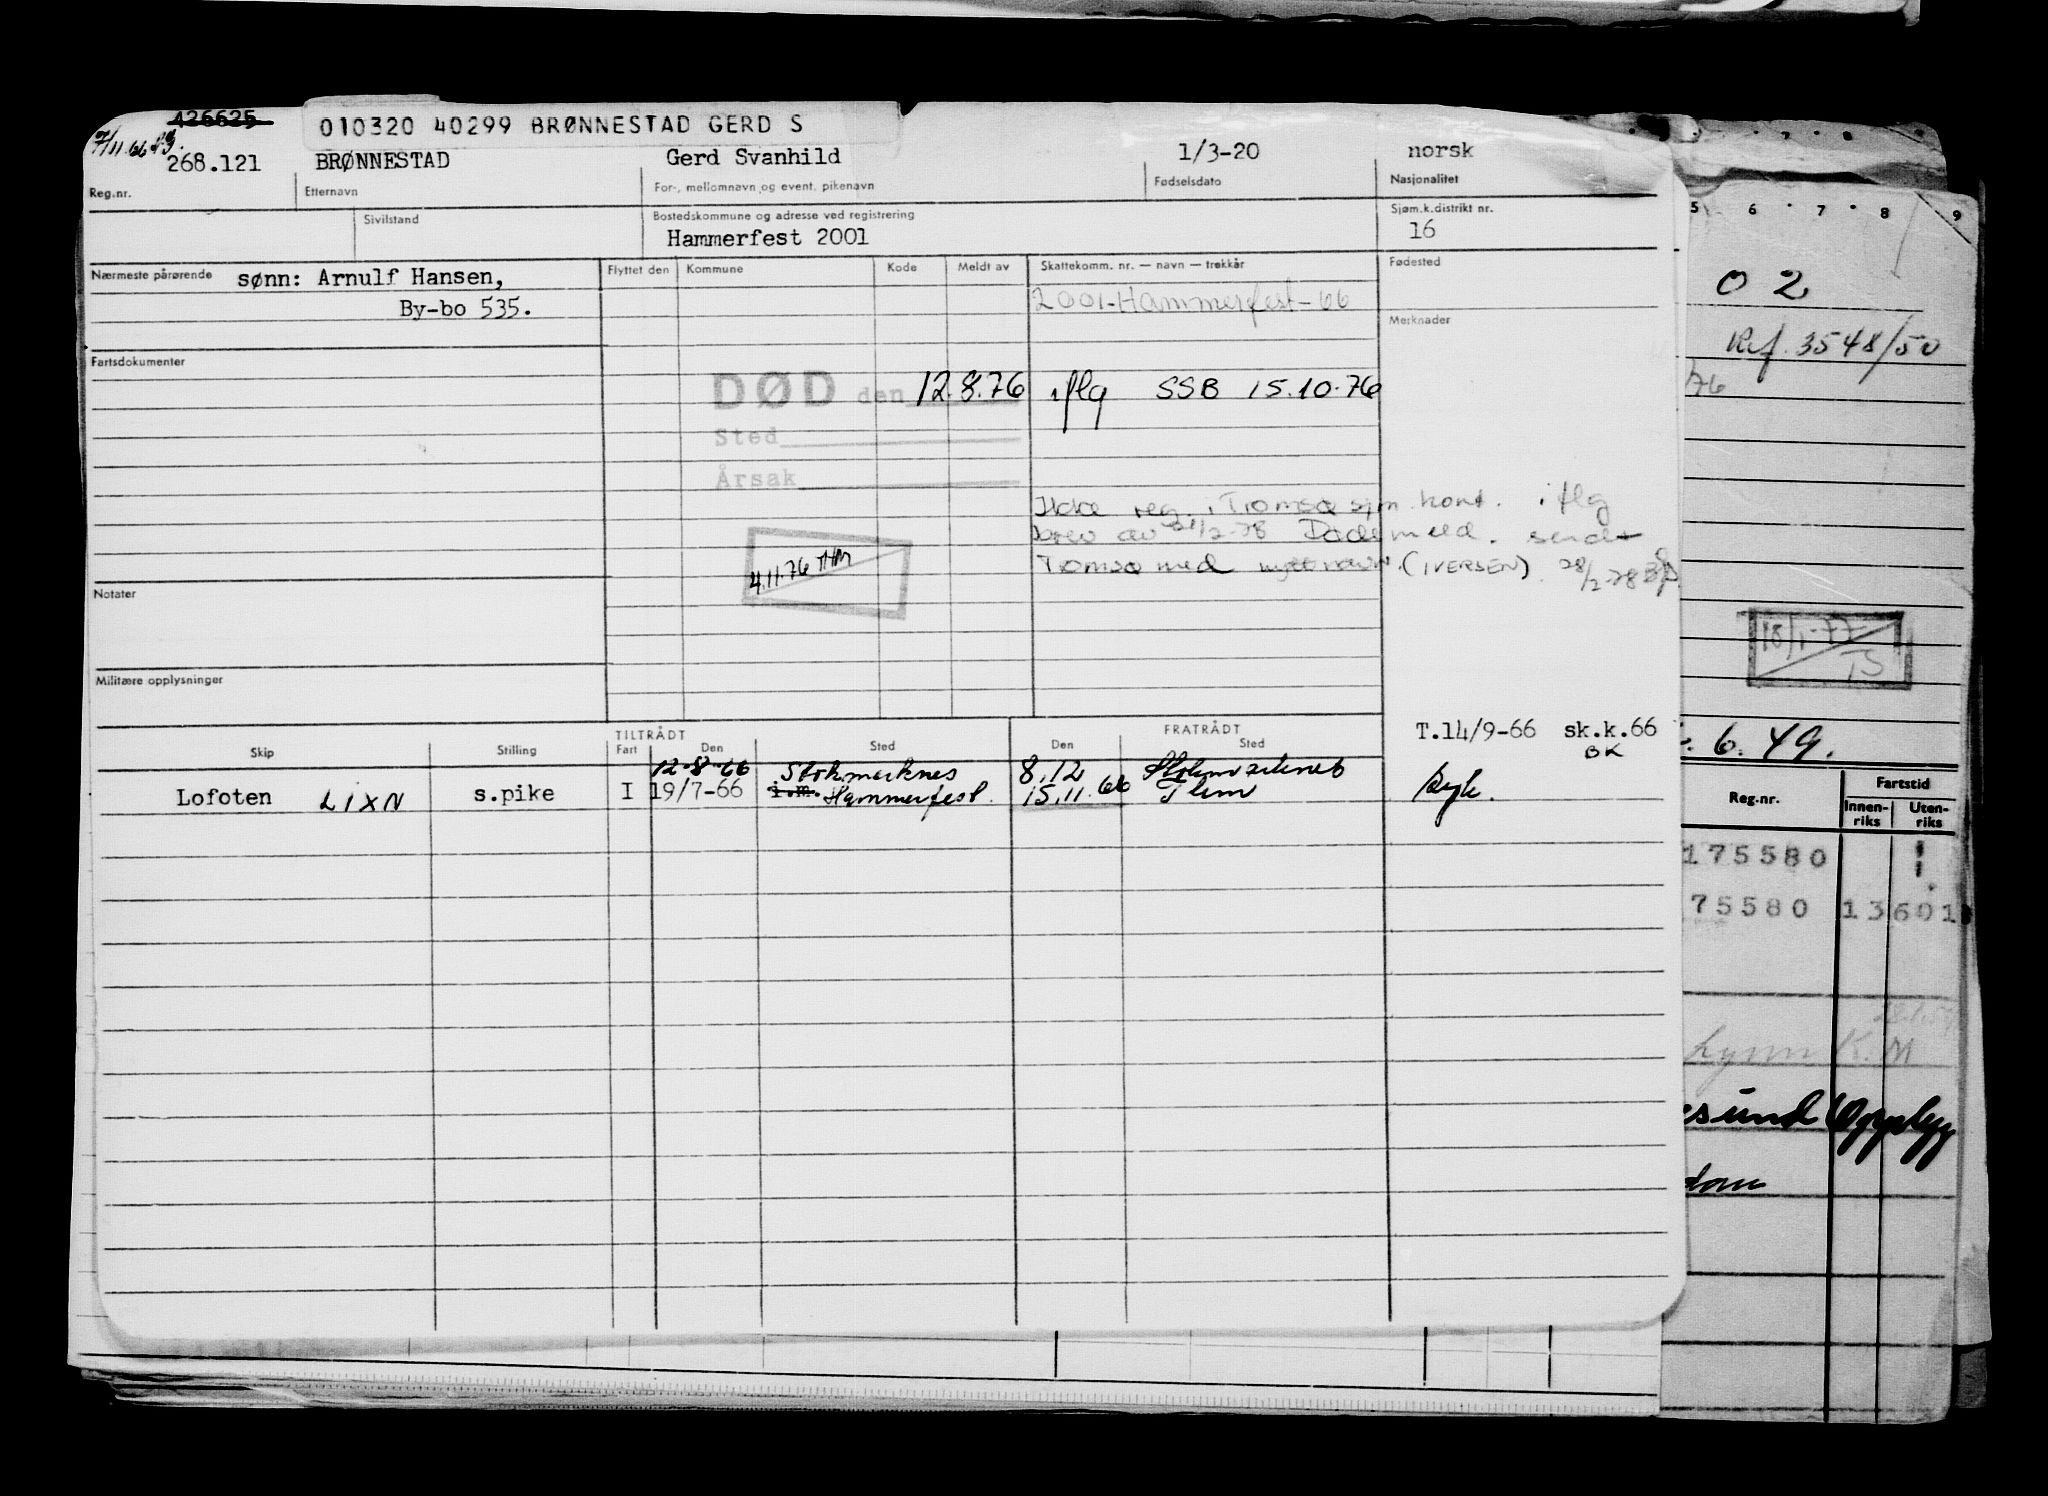 426625
7/11.66
010320 40299 BRØNNESTAD GERD S
268.121 BRØNNESTAD Gerd Svanhild 1/3-20 norsk
Reg.nr. Etternavn For-, mellomnavn og event. pikenavn Fødselsdato Nasjonalitet
Sivilstand Bostedskommune og adresse ved registrering Sjøm.k.distrikt nr.
Hammerfest 2001 16
Nærmeste pårørende sønn: Arnulf Hansen, Flyttet den Kommune Kode Meldt av Skattekomm. nr. — navn — trekkår Fødested
By-bo 535. 2001-Hammerfest-66
Merknader
Fartsdokumenter
DØD den 12.8.76 iflg SSB 15.10.76
Sted
Årsak
Ikke reg. i Tromsø sjm. kont. iflg
brev av 21/2-78 Dødsmeld. sendt
Tromsø med nytt navn. (IVERSEN). 28/2-78
4.11.76 THM
Notater
Militære opplysninger
TILTRÅDT FRATRÅDT T.14/9-66 sk.k.66
Skip Stilling Fart Den Sted Den Sted BK
12-8-66 Stokmarknes 8.12
Lofoten LIXN s.pike I 19/7-66 i.m. Hammerfest. 15.11.66
5 6 7 8 9
0 2
Ref. 3548/50
/76
18/1-77
TS
6.49.
Reg.nr. Fartstid
Innen-riks Uten-riks
175580 1
75580 13 601
Lynn K. M
esund Opplegg
dam